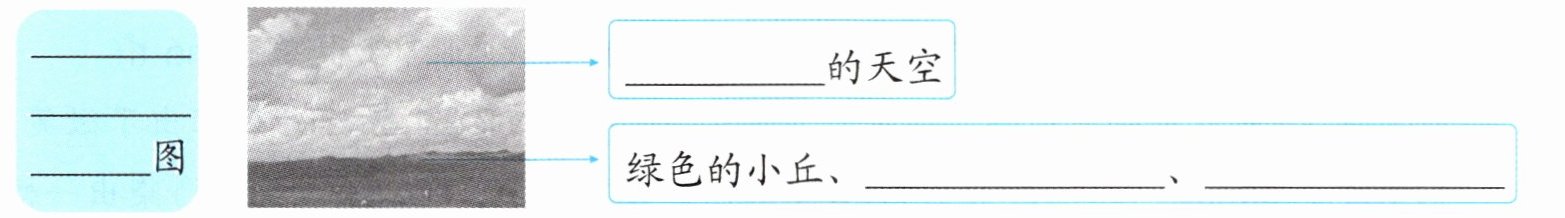 ________图
________的天空
绿色的小丘、________、________